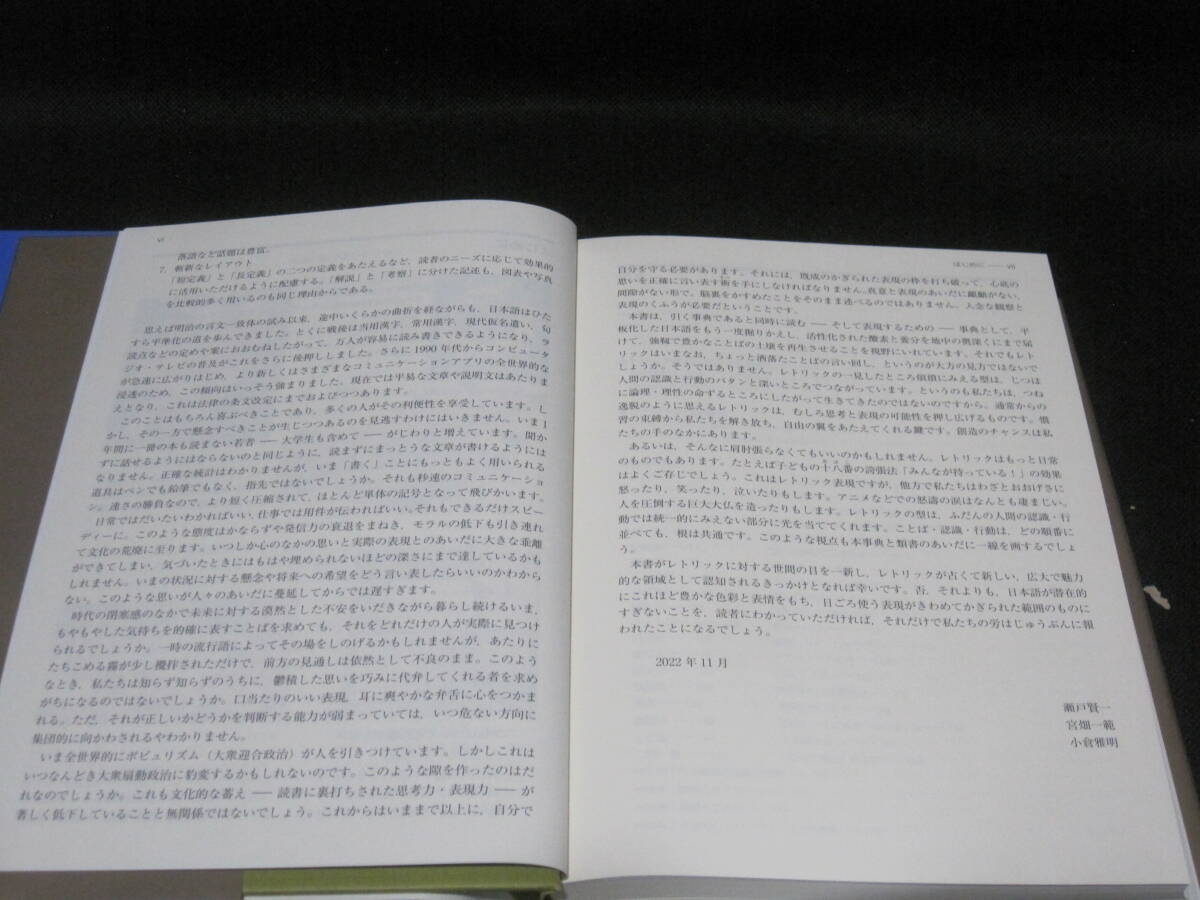 vi
落語など話題は豊富。
7. 斬新なレイアウト
「短定義」と「長定義」の二つの定義をあたえるなど、読者のニーズに応じて効果的
に活用いただけるように配慮する。「解説」と「考察」に分けた記述も、図表や写真
を比較的多く用いるのも同じ理由からである。
思えば明治の言文一致体の試み以来、途中いくらかの曲折を経ながらも、日本語はひた
すら平準化の道を歩んできました。とくに戦後は当用漢字、常用漢字、現代仮名遣い、句
読点などの定めや案におおむねしたがって、万人が容易に読み書きできるようになり、ラ
ジオ・テレビの普及がこれをさらに後押ししました。さらに1990年代からコンピュータ
が急速に広がりはじめ、より新しくはさまざまなコミュニケーションアプリの全世界的な
浸透のため、この傾向はいっそう強まりました。現在では平易な文章や説明文はあたりま
えとなり、これは法律の条文改定にまでおよびつつあります。
このことはもちろん喜ぶべきことであり、多くの人がその利便性を享受しています。し
かし、その一方で懸念すべきことが生じつつあるのを見逃すわけにはいきません。いま1
年間に一冊の本も読まない若者 ── 大学生も含めて ── がじわりと増えています。聞か
ずに話せるようにはならないのと同じように、読まずにまっとうな文章が書けるようには
なりません。正確な統計はわかりませんが、いま「書く」ことにもっともよく用いられる
道具はペンでも鉛筆でもなく、指先ではないでしょうか。それも秒速のコミュニケーショ
ン。速さの勝負なので、より短く圧縮されて、ほとんど単体の記号となって飛びかいます。
日常ではだいたいわかればいい、仕事では用件が伝わればいい。それもできるだけスピー
ディーに。このような態度はかならずや発信力の衰退をまねき、モラルの低下も引き連れ
て文化の荒廃に至ります。いつしか心のなかの思いと実際の表現とのあいだに大きな乖離
ができてしまい、気づいたときにはもはや埋められないほどの深さにまで達しているかも
しれません。いまの状況に対する懸念や将来への希望をどう言い表したらいいのかわから
ない。このような思いが人々のあいだに蔓延してからでは遅すぎます。
時代の閉塞感のなかで未来に対する漠然とした不安をいだきながら暮らし続けるいま、
もやもやした気持ちを的確に表すことばを求めても、それをどれだけの人が実際に見つけ
られるでしょうか。一時の流行語によってその場をしのげるかもしれませんが、あたりに
たちこめる霧が少し攪拌されただけで、前方の見通しは依然として不良のまま。このよう
なとき、私たちは知らず知らずのうちに、鬱積した思いを巧みに代弁してくれる者を求め
がちになるのではないでしょうか。口当たりのいい表現、耳に爽やかな弁舌に心をつかま
れる。ただ、それが正しいかどうかを判断する能力が弱まっていては、いつ危ない方向に
集団的に向かわされるやもわかりません。
いま全世界的にポピュリズム（大衆迎合政治）が人を引きつけています。しかしこれは
いつなんどき大衆扇動政治に豹変するかもしれないのです。このような隙を作ったのはだ
れなのでしょうか。これも文化的な蓄え ── 読書に裏打ちされた思考力・表現力 ── が
著しく低下していることと無関係ではないでしょう。これからはいままで以上に、自分で
はじめに ── vii
自分を守る必要があります。それには、既成のかぎられた表現の枠を打ち破って、心底の
思いを正確に言い表す術を手にしなければなりません。真意と表現のあいだに齟齬がない、
間隙がない形で。脳裏をかすめたことをそのまま述べるのではありません。入念な観察と
表現のくふうが必要だということです。
本書は、引く事典であると同時に読む ── そして表現するための ── 事典として、平
板化した日本語をもう一度掘りかえし、活性化された酸素と養分を地中の奥深くにまで届
けて、強靱で豊かなことばの土壌を再生させることを視野にいれています。それでもレト
リックはいまなお、ちょっと洒落たことばの言い回し、というのが大方の見方ではないで
しょうか。そうではありません。レトリックの一見したところ瑣瑣にみえる型は、じつは
人間の認識と行動のパタンと深いところでつながっています。というのも私たちは、つね
に論理・理性の命ずるところにしたがって生きてきたのではないのですから。通常からの
逸脱のように思えるレトリックは、むしろ思考と表現の可能性を押し広げるものです。慣
習の束縛から私たちを解き放ち、自由の翼をあたえてくれる鍵です。創造のチャンスは私
たちの手のなかにあります。
あるいは、そんなに肩肘張らなくてもいいのかもしれません。レトリックはもっと日常
のものでもあります。たとえば子どもの十八番の誇張法「みんなが持っている！」の効果
はよくご存じでしょう。これはレトリック表現ですが、他方で私たちはわざとおおげさに
怒ったり、笑ったり、泣いたりもします。アニメなどでの怒濤の涙はなんとも凄まじい。
人を圧倒する巨大大仏を造ったりもします。レトリックの型は、ふだんの人間の認識・行
動では統一的にみえない部分に光を当ててくれます。ことば・認識・行動は、どの順番に
並べても、根は共通です。このような視点も本事典と類書のあいだに一線を画するでしょ
う。
本書がレトリックに対する世間の目を一新し、レトリックが古くて新しい、広大で魅力
的な領域として認知されるきっかけとなれば幸いです。否、それよりも、日本語が潜在的
にこれほど豊かな色彩と表情をもち、日ごろ使う表現がきわめてかぎられた範囲のものに
すぎないことを、読者にわかっていただければ、それだけで私たちの労はじゅうぶんに報
われたことになるでしょう。
2022年11月
瀬戸賢一
宮畑一範
小倉雅明